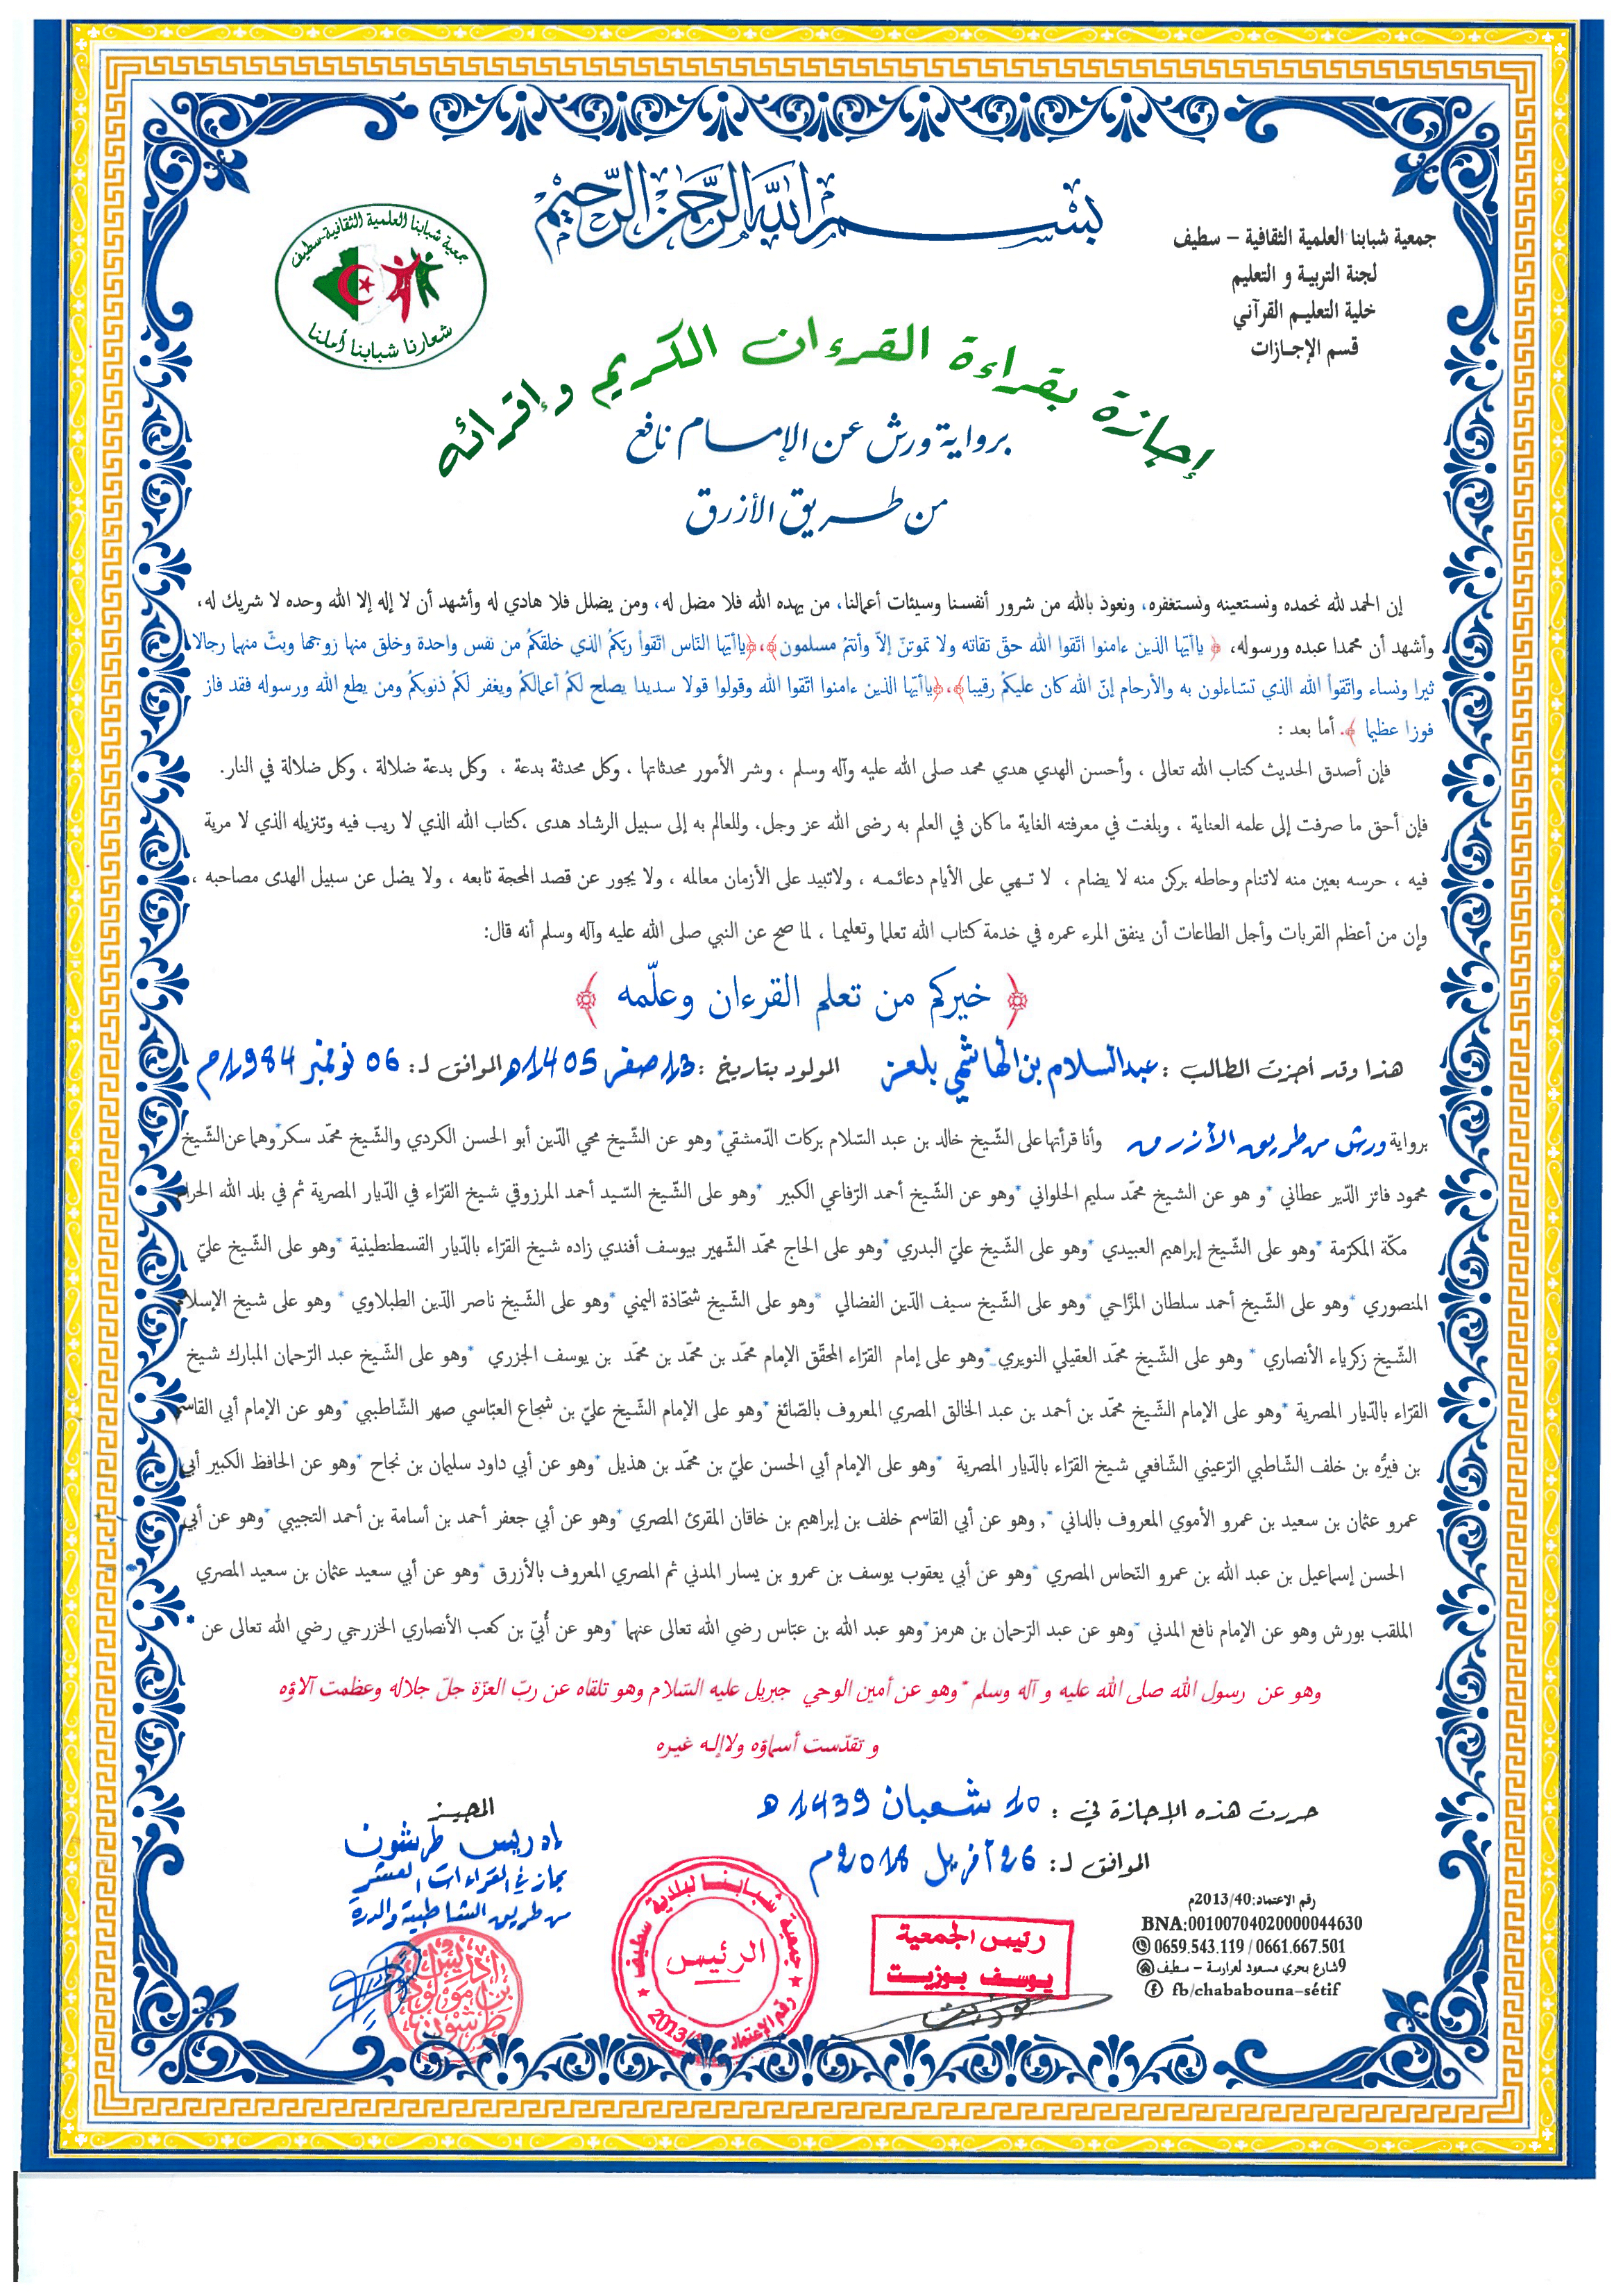 بسم الله الرحمن الرحيم
جمعية شبابنا العلمية الثقافية - سطيف
لجنة التربية و التعليم
خلية التعليم القرآني
قسم الإجازات
جمعية شبابنا العلمية الثقافية-سطيف
شعارنا شبابنا أملنا
إجازة بقراءة القرءان الكريم وإقرائه
برواية ورش عن الإمام نافع
من طريق الأزرق
إن الحمد لله نحمده ونستعينه ونستغفره، ونعوذ بالله من شرور أنفسنا وسيئات أعمالنا، من يهده الله فلا مضل له، ومن يضلل فلا هادي له وأشهد أن لا إله إلا الله وحده لا شريك له،
وأشهد أن محمدا عبده ورسوله، ﴿ ياأيّها الذين ءامنوا اتّقوا الله حقّ تقاته ولا تموتنّ إلاّ وأنتمُ مسلمون﴾،﴿ياأيّها النّاس اتّقواْ ربّكمُ الذي خلقكمُ من نفس واحدة وخلق منها زوجها وبثّ منهما رجالا
ثيرا ونساء واتّقواْ الله الذي تسّاءلون به والأرحام إنّ الله كان عليكمُ رقيبا﴾،﴿ياأيّها الذين ءامنوا اتّقوا الله وقولوا قولا سديدا يصلح لكمُ أعمالكمُ ويغفر لكمُ ذنوبكمُ ومن يطع الله ورسوله فقد فاز
فوزا عظيما ﴾. أما بعد :
فإن أصدق الحديث كتاب الله تعالى ، وأحسن الهدي هدي محمد صلى الله عليه وآله وسلم ، وشر الأمور محدثاتها ، وكل محدثة بدعة ، وكل بدعة ضلالة ، وكل ضلالة في النار.
فإن أحق ما صرفت إلى علمه العناية ، وبلغت في معرفته الغاية ماكان في العلم به رضى الله عز وجل، وللعالم به إلى سبيل الرشاد هدى ،كتاب الله الذي لا ريب فيه وتنزيله الذي لا مرية
فيه ، حرسه بعين منه لاتنام وحاطه بركن منه لا يضام ، لا تهي على الأيام دعائمه ، ولاتبيد على الأزمان معالمه ، ولا يجور عن قصد المحجة تابعه ، ولا يضل عن سبيل الهدى مصاحبه ،
وإن من أعظم القربات وأجل الطاعات أن ينفق المرء عمره في خدمة كتاب الله تعلما وتعليما ، لما صح عن النبي صلى الله عليه وآله وسلم أنه قال:
﴿ خيركم من تعلم القرءان وعلّمه ﴾
هذا وقد أجزت الطالب : عبدالسلام بن الهاشمي بلعز المولود بتاريخ : 13 صفر 1405 هـ الموافق لـ: 06 نوفمبر 1984م
برواية ورش من طريق الأزرق وأنا قرأتها على الشّيخ خالد بن عبد السّلام بركات الدّمشقي* وهو عن الشّيخ محي الدّين أبو الحسن الكردي والشّيخ محمّد سكر*وهما عن الشّيخ
محمود فائز الدّير عطاني *و هو عن الشيخ محمّد سليم الحلواني *وهو عن الشّيخ أحمد الرّفاعي الكبير *وهو على الشّيخ السّيد أحمد المرزوقي شيخ القرّاء في الدّيار المصرية ثم في بلد الله الحرام
مكّة المكرّمة *وهو على الشّيخ إبراهيم العبيدي *وهو على الشّيخ عليّ البدري *وهو على الحاج محمّد الشّهير بيوسف أفندي زاده شيخ القرّاء بالدّيار القسطنطينية *وهو على الشّيخ عليّ
المنصوري *وهو على الشّيخ أحمد سلطان المزّاحي *وهو على الشّيخ سيف الدّين الفضالي *وهو على الشّيخ شحّاذة اليمني *وهو على الشّيخ ناصر الدّين الطبلاوي * وهو على شيخ الإسلام
الشّيخ زكرياء الأنصاري * وهو على الشّيخ محمّد العقيلي النويري *وهو على إمام القرّاء المحقّق الإمام محمّد بن محمّد بن محمّد بن يوسف الجزري *وهو على الشّيخ عبد الرّحمان المبارك شيخ
القرّاء بالدّيار المصرية *وهو على الإمام الشّيخ محمّد بن أحمد بن عبد الخالق المصري المعروف بالصّائغ *وهو على الإمام الشّيخ عليّ بن شجاع العبّاسي صهر الشّاطبي *وهو عن الإمام أبي القاسم
بن فيرُّه بن خلف الشّاطبي الرّعيني الشّافعي شيخ القرّاء بالدّيار المصرية *وهو على الإمام أبي الحسن عليّ بن محمّد بن هذيل *وهو عن أبي داود سليمان بن نجاح *وهو عن الحافظ الكبير أبي
عمرو عثمان بن سعيد بن عمرو الأموي المعروف بالداني *, وهو عن أبي القاسم خلف بن إبراهيم بن خاقان المقرئ المصري *وهو عن أبي جعفر أحمد بن أسامة بن أحمد التجيبي *وهو عن أبي
الحسن إسماعيل بن عبد الله بن عمرو النّحاس المصري *وهو عن أبي يعقوب يوسف بن عمرو بن يسار المدني ثم المصري المعروف بالأزرق *وهو عن أبي سعيد عثمان بن سعيد المصري
الملقب بورش وهو عن الإمام نافع المدني *وهو عن عبد الرّحمان بن هرمز*وهو عبد الله بن عبّاس رضي الله تعالى عنهما *وهو عن أُبيّ بن كعب الأنصاري الخزرجي رضي الله تعالى عن
وهو عن رسول الله صلى الله عليه و آله وسلم *وهو عن أمين الوحي جبريل عليه السّلام وهو تلقاه عن ربّ العزّة جلّ جلاله وعظمت آلاؤه
و تقدّست أسماؤه ولاإله غيره
حررت هذه الإجازة في : 10 شعبان 1439 هـ
الموافق لـ: 26 أفريل 2018م
المجيز
إدريس طرشون
مجاز في القراءات العشر
من طريق الشاطبية والدرة
إدريس بن مولود طرشون
جمعية شبابنا لبلدية سطيف
الرئيس
رقم الإعتماد 2013/
رئيس الجمعية
يوسف بوزيت
رقم الاعتماد:2013/40م
BNA:00100704020000044630
0659.543.119 / 0661.667.501
9شارع بحري مسعود لعرارسة - سطيف
fb/chababouna-sétif